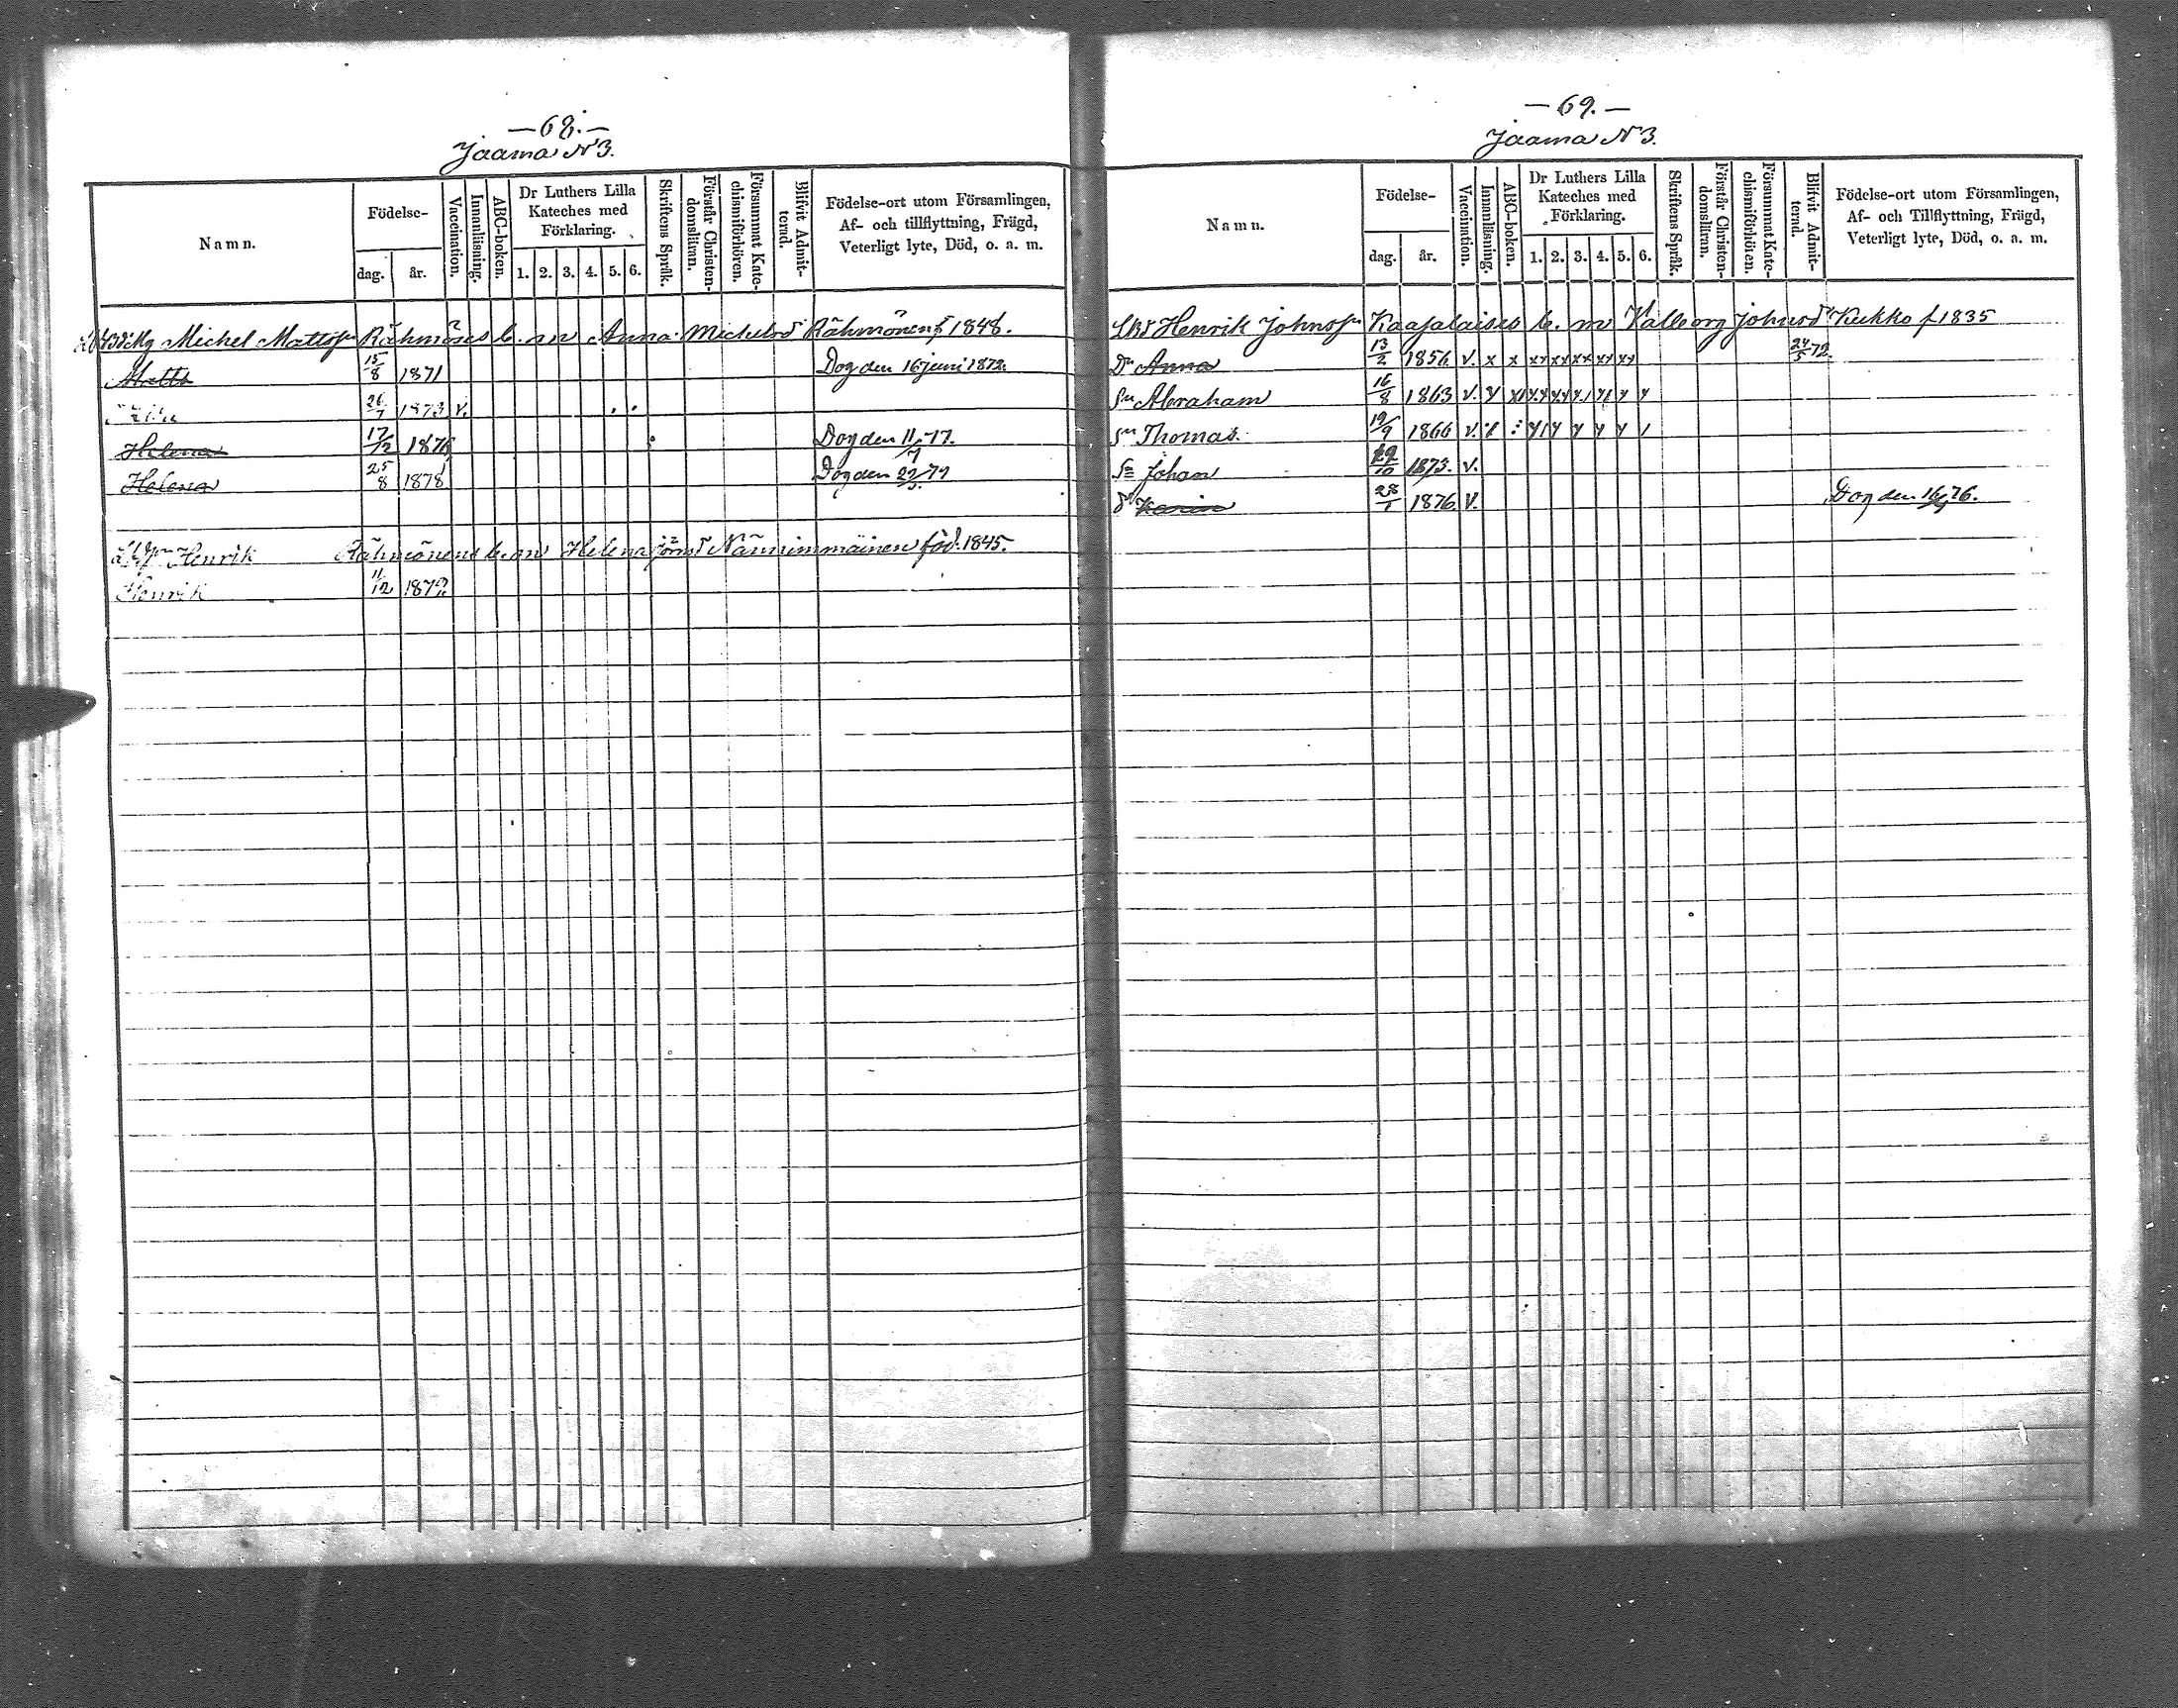 — 68. —
Jaama N 3.
Namn.
Födelse-
dag.
år.
Vaccination.
Innanläsning.
ABC-boken.
Dr Luthers Lilla
Kateches med
Förklaring.
1. 2. 3. 4. 5. 6.
Skriftens Språk.
Förstår Christen-
domsläran.
Försummat Kate-
chismiförhören.
Blifvit Admit-
terad.
Födelse-ort utom Församlingen,
Af- och tillflyttning, Frägd,
Veterligt lyte, Död, o. a. m.
Michel Mattss Rähmönens b. m Anna Michelsdr Rähmönen f 1848.
Matts 15/8 1871 Dog den 16 juni 1872.
26/7 1873 v.
Helena 17/12 1876 Dog den 11/7 77.
Helena 25/8 1878 Dog den 77
Henrik Rähmönens b. m Helena Nännimmäinen föd. 1845.
Henrik 11/12 1872
— 69. —
Jaama N 3.
Namn.
Födelse-
dag.
år.
Vaccination.
Innanläsning.
ABC-boken.
Dr Luthers Lilla
Kateches med
Förklaring.
1. 2. 3. 4. 5. 6.
Skriftens Språk.
Förstår Christen-
domsläran.
Försummat Kate-
chismiförhören.
Blifvit Admit-
terad.
Födelse-ort utom Församlingen,
Af- och Tillflyttning, Frägd,
Veterligt lyte, Död, o. a. m.
Henrik Johnss Kaasalaises b. m Valborg Johnsdr Kukko f 1835
Dr Anna 13/2 1856 v. x x xx xx xx xx xx 24/5 72.
Sn Abraham 16/8 1863 v.
Sn Thomas. 19/9 1866 v.
Sn Johan 1873. v.
dr 28/1 1876 v. Dog den 16/9 76.